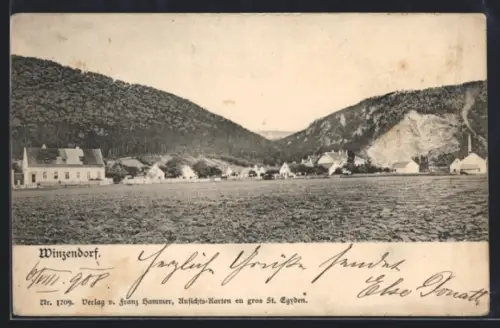 Winzendorf.
6/VIII. 908 Herzliche Grüße sendet
Else Donatt
Nr. 1209. Verlag v. Franz Hammer, Ansichts-Karten en gros St. Egyden.